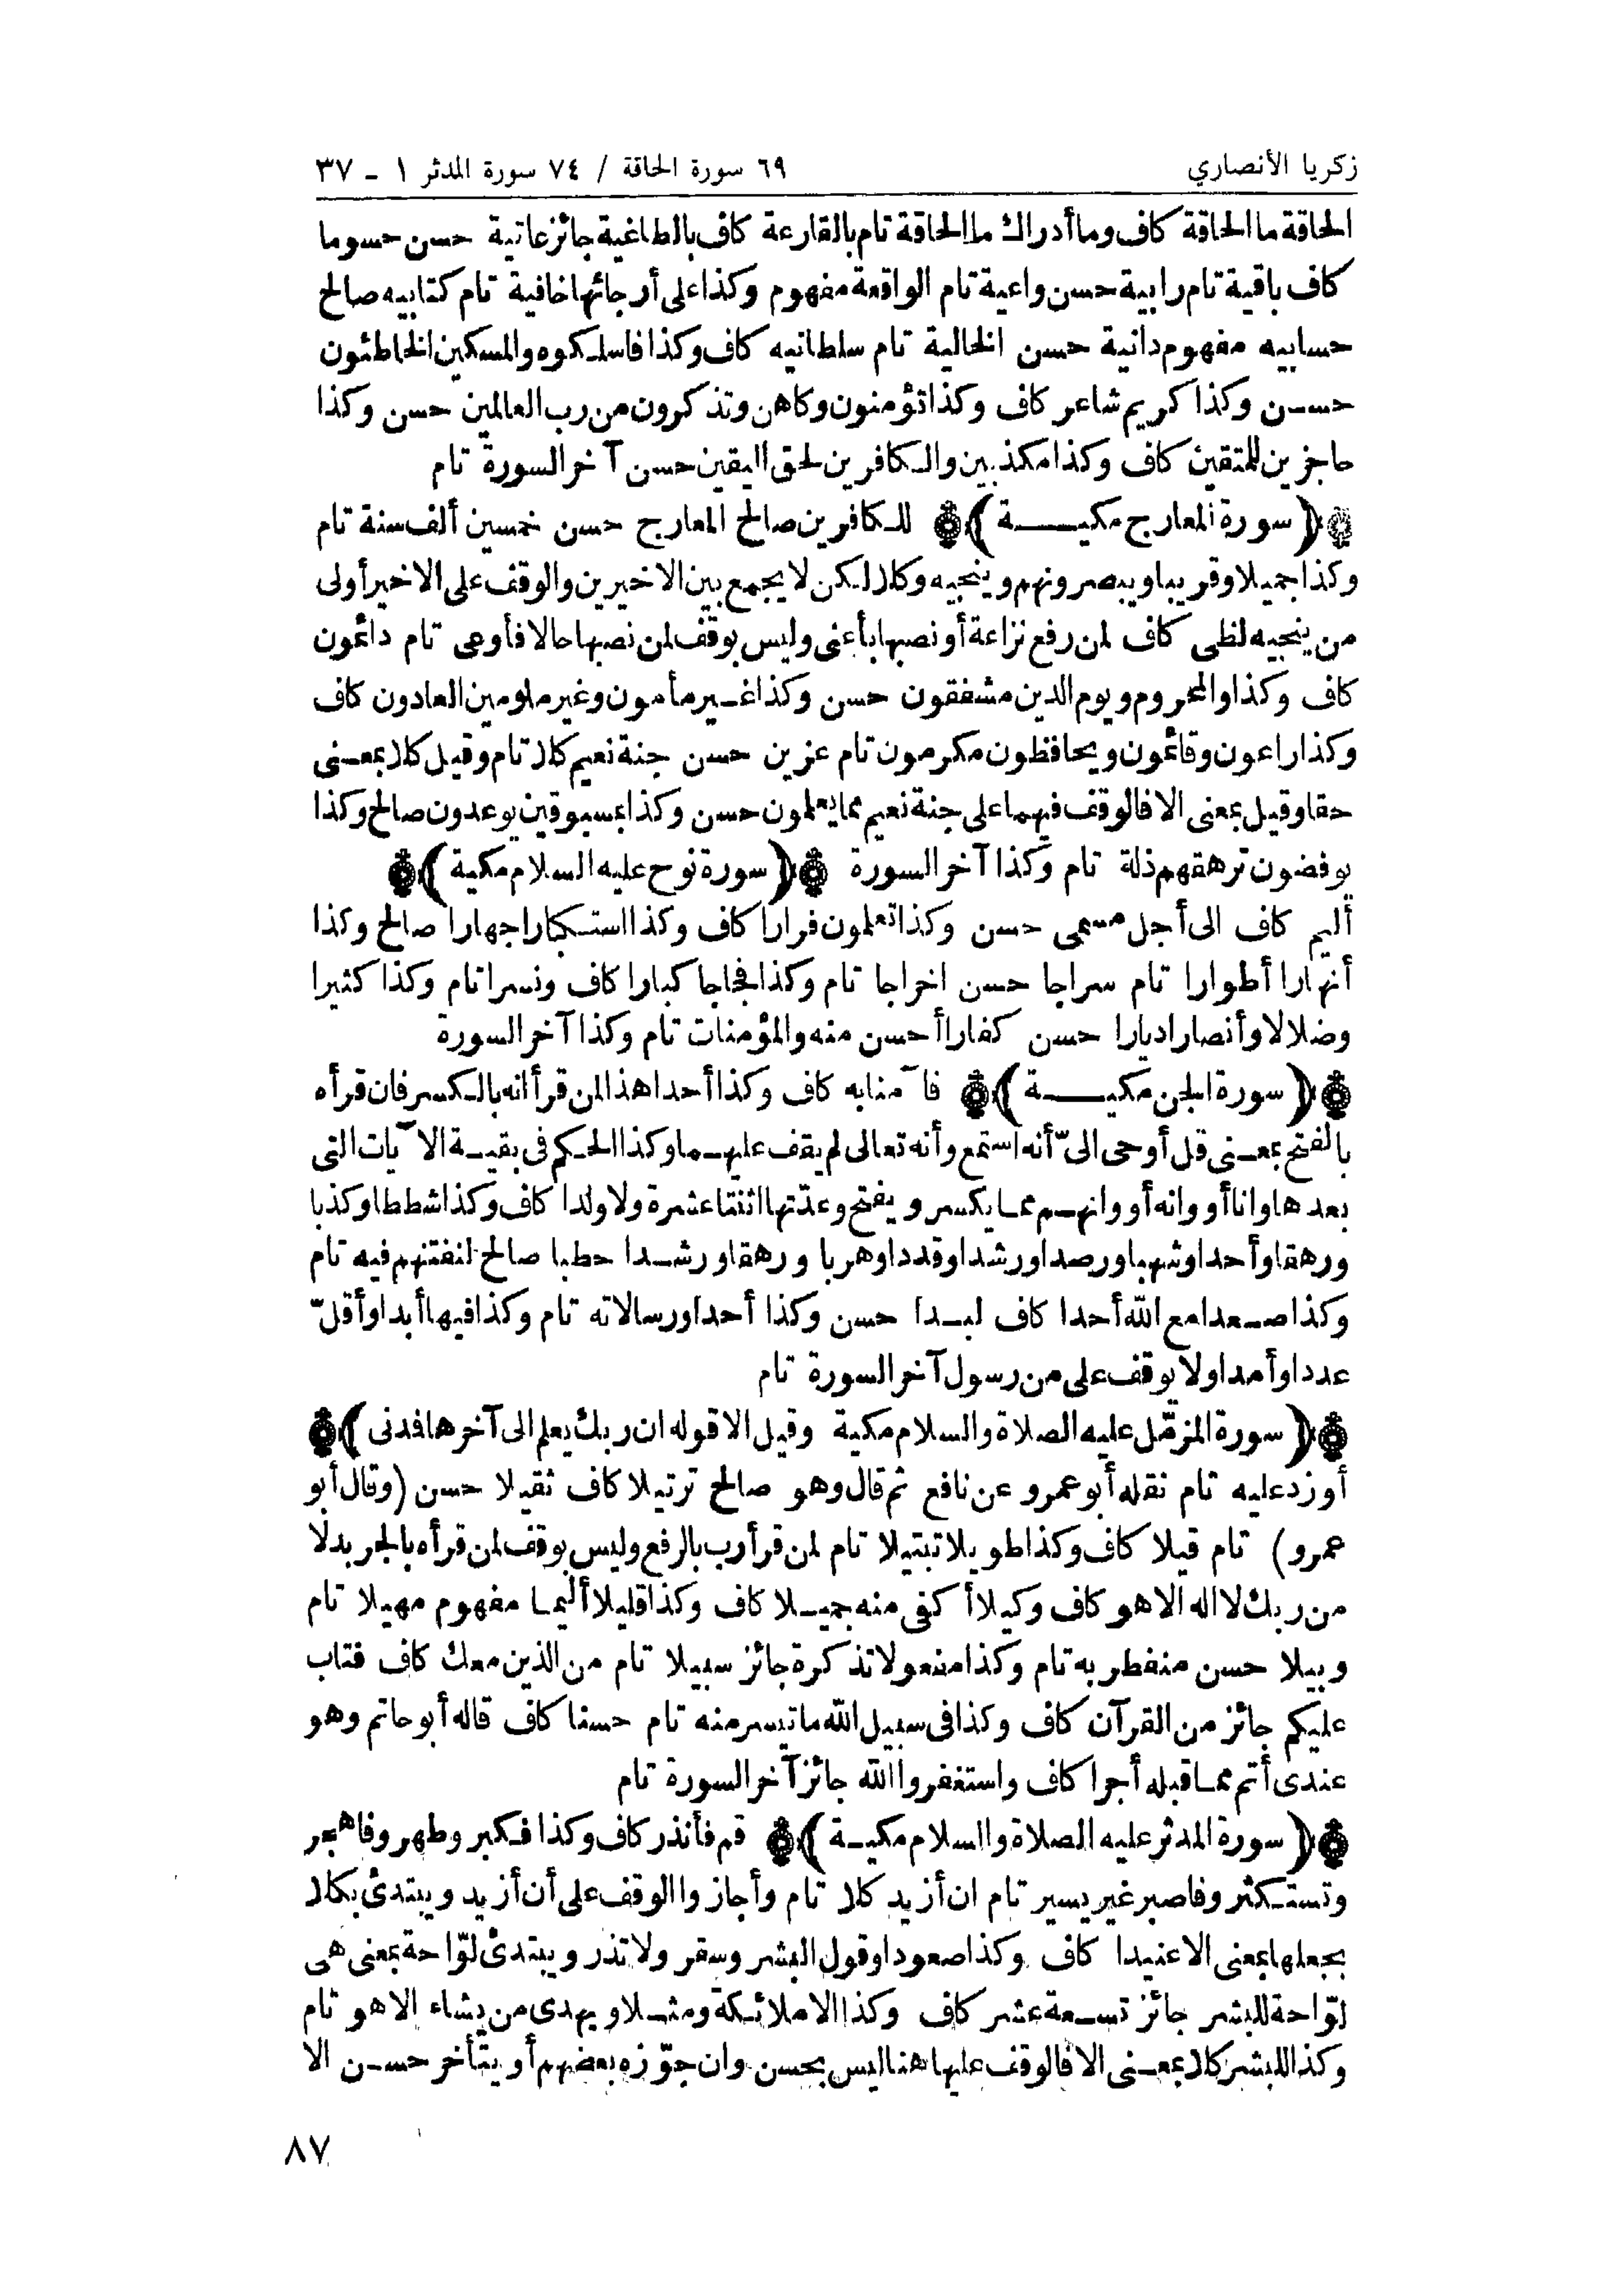 زكريا الأنصاري
٦٩ سورة الحاقة / ٧٤ سورة المدثر ١ - ٣٧
الحاقة ما الحاقة كاف وما أدراك ما الحاقة تام بالقارعة كاف بالطاغية جائز عاتية حسن حسوما
كاف باقية تام رابية حسن واعية تام الواقعة مفهوم وكذا على أرجائها خافية تام كتابيه صالح
حسابيه مفهوم دانية حسن الخالية تام سلطانيه كاف وكذا فاسلكوه والمسكين الخاطئون
حسن وكذا كريم شاعر كاف وكذا تؤمنون وكاهن وتذكرون من رب العالمين حسن وكذا
حاجزين للمتقين كاف وكذا مكذبين والكافرين لحق اليقين حسن آخر السورة تام
﴿ سورة المعارج مكية ﴾ للكافرين صالح المعارج حسن خمسين ألف سنة تام
وكذا جميلا وقريبا ويبصرونهم وينجيه وكلا لكن لا يجمع بين الاخيرين والوقف على الاخير أولى
من ينجيه لظى كاف لمن رفع نزاعة أو نصبها بأعنى وليس بوقف لمن نصبها حالا فأوعى تام دائمون
كاف وكذا والمحروم ويوم الدين مشفقون حسن وكذا غير مأمون وغير ملومين العادون كاف
وكذا راعون وقائمون ويحافظون مكرمون تام عزين حسن جنة نعيم كلا تام وقيل كلا بمعنى
حقا وقيل بمعنى الا فالوقف فيهما على جنة نعيم مما يعلمون حسن وكذا بمسبوقين يوعدون صالح وكذا
يوفضون ترهقهم ذلة تام وكذا آخر السورة ﴿ سورة نوح عليه السلام مكية ﴾
أليم كاف الى أجل مسمى حسن وكذا تعلمون فرارا كاف وكذا استكبارا جهارا صالح وكذا
أنهارا أطوارا تام سراجا حسن اخراجا تام وكذا فجاجا كبارا كاف ونسرا تام وكذا كثيرا
وضلالا وأنصارا ديارا حسن كفارا أحسن منه والمؤمنات تام وكذا آخر السورة
﴿ سورة الجن مكية ﴾ فآمنا به كاف وكذا أحدا هذا لمن قرأ انه بالكسر فان قرأه
بالفتح بمعنى قل أوحى الىّ أنه استمع وأنه تعالى لم يقف عليهما وكذا الحكم فى بقية الآيات التى
بعدها وانا أو وانه أو وانهم مما يكسر ويفتح وعدّتها اثنتا عشرة ولا ولدا كاف وكذا شططا وكذبا
ورهقا وأحدا وشهبا ورصدا ورشدا وقددا وهربا ورهقا ورشدا حطبا صالح لنفتنهم فيه تام
وكذا صعدا مع الله أحدا كاف لبدا حسن وكذا أحدا ورسالاته تام وكذا فيها أبدا وأقلّ
عددا وأمدا ولا يوقف على من رسول آخر السورة تام
﴿ سورة المزمّل عليه الصلاة والسلام مكية وقيل الا قوله ان ربك يعلم الى آخرها فمدنى ﴾
أو زد عليه تام نقله أبو عمرو عن نافع ثم قال وهو صالح ترتيلا كاف ثقيلا حسن (وقال أبو
عمرو) تام قيلا كاف وكذا طويلا تبتيلا تام لمن قرأ رب بالرفع وليس بوقف لمن قرأه بالجر بدلا
من ربك لا اله الا هو كاف وكيلا أكفى منه جميلا كاف وكذا قليلا أليما مفهوم مهيلا تام
وبيلا حسن منفطر به تام وكذا مفعولا تذكرة جائز سبيلا تام من الذين معك كاف فتاب
عليكم جائز من القرآن كاف وكذا فى سبيل الله ما تيسر منه تام حسنا كاف قاله أبو حاتم وهو
عندى أتم مما قبله أجرا كاف واستغفروا الله جائز آخر السورة تام
﴿ سورة المدثر عليه الصلاة والسلام مكية ﴾ قم فأنذر كاف وكذا فكبر وطهر وفاهجر
وتستكثر وفاصبر غير يسير تام ان أزيد كلا تام وأجازوا الوقف على أن أزيد ويبتدئ بكلا
بجعلها بمعنى الا عنيدا كاف وكذا صعودا وقول البشر وسقر ولا تذر ويبتدئ لوّاحة بمعنى هى
لوّاحة للبشر جائز تسعة عشر كاف وكذا الا ملائكة ومثلا ويهدى من يشاء الا هو تام
وكذا للبشر كلا بمعنى الا فالوقف عليها هنا ليس بحسن وان جوّزه بعضهم أو يتأخر حسن الا
٨٧